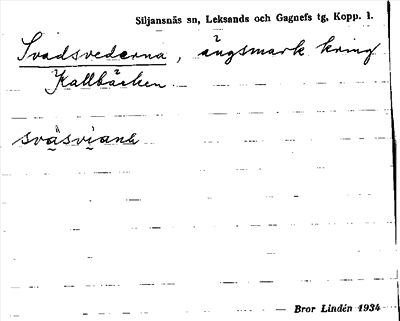 Siljansnäs sn, Leksands och Gagnefs tg, Kopp. l.
Svadsvederna, ängsmark kring
Kallbäcken
Bror Lindén 1934